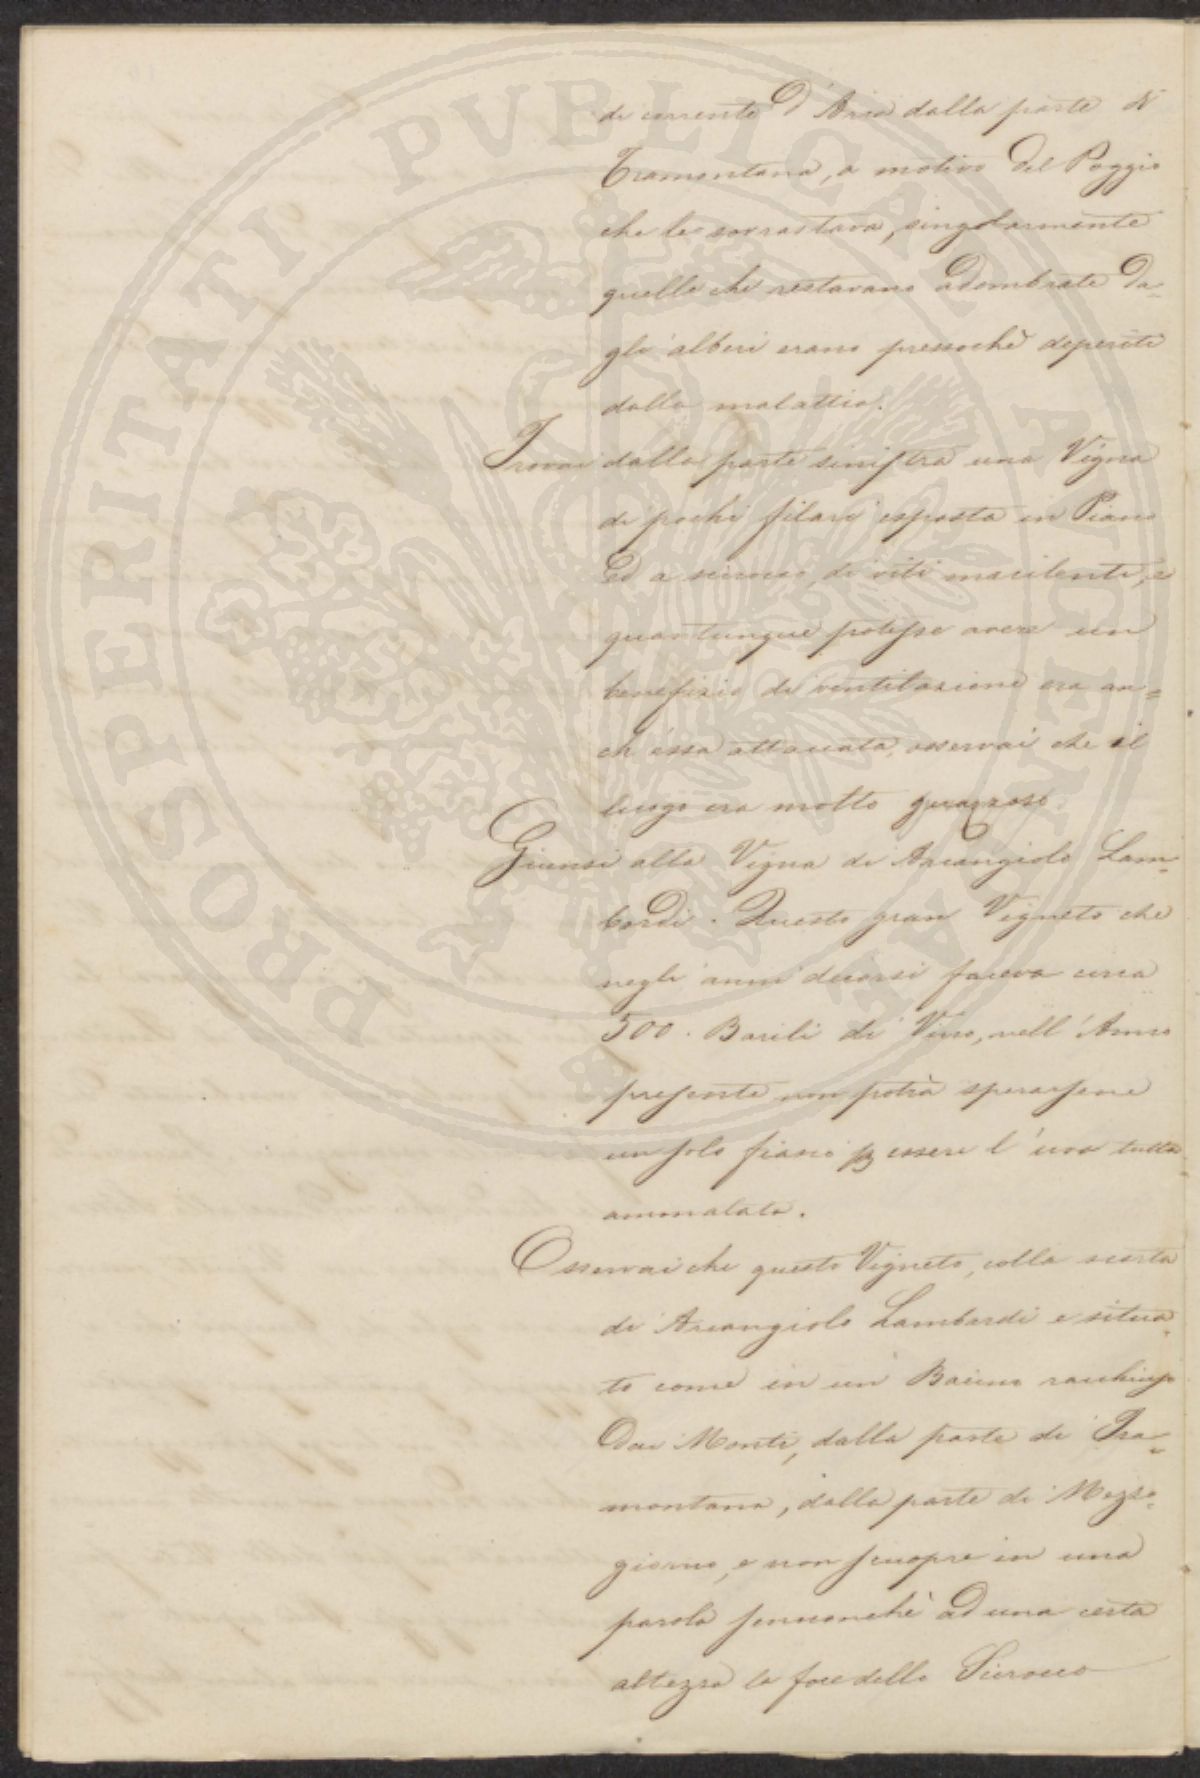 di corrente d'Aria dalla parte di
Tramontana, a motivo del Poggio
che le sovrastava, singolarmente
quelle che restavano adombrate da=
gli alberi erano pressochè deperite
dalla malattia.
Trovai dalla parte sinistra una Vigna
di pochi filari esposta in Piano
ed a scirocco, di viti macilente, e
quantunque potesse avere un
benefizio di ventilazione era an=
ch'essa attaccata, osservai che il
luogo era molto guazzoso.
Giunsi alla Vigna di Arcangiolo Lam=
bardi. Questo gran Vigneto che
negli anni decorsi faceva circa
500. Barili di Vino, nell'Anno
presente non potrà sperarsene
un solo fiasco essere l'uva tutta
ammalata.
Osservai che questo Vigneto, colla scorta
di Arcangiolo Lambardi e situa=
to come in un Bacino racchiuso
dai Monti, dalla parte di Tra=
montana, dalla parte di Mezzo=
giorno, e non scuopre in una
parola sennonchè ad una certa
altezza la foce dello Scirocco
PROSPERITATI PVBLICAE AVGENDAE